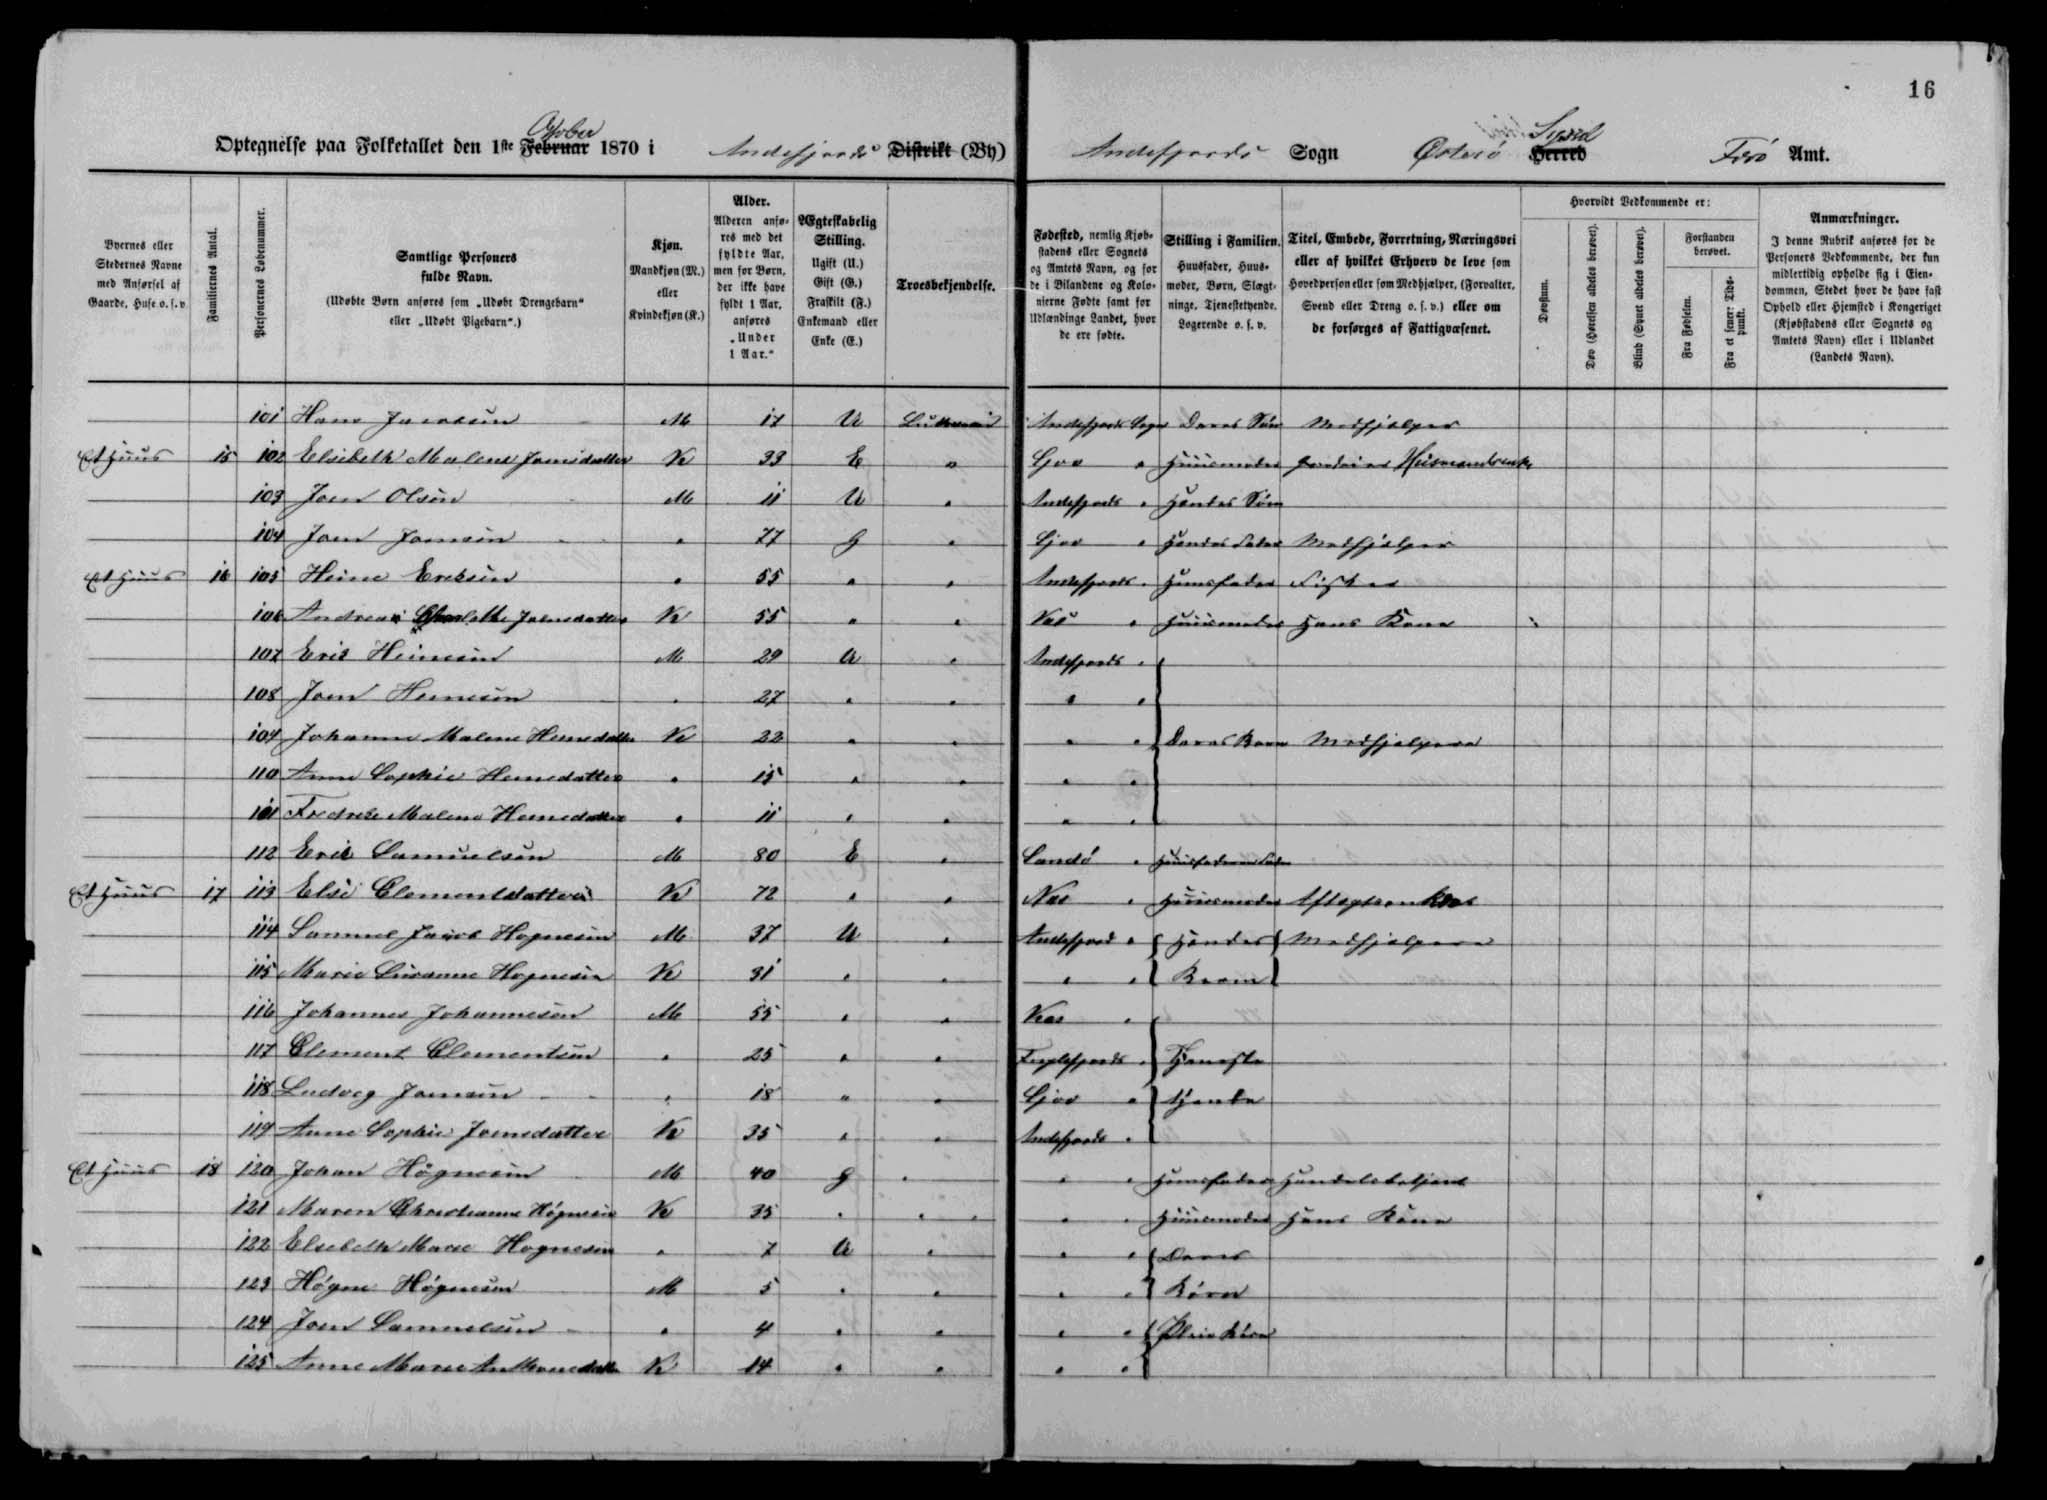 16
Optegnelse paa Folketallet den 1ste Februar October 1870 i Andefjords Distrikt (By)
Andefjords Sogn Østerø Herred Syssel Færø Amt.
Byernes eller Stedernes Navne med Anførsel af Gaarde, Huse o. s. v.
Familiernes Antal.
Personernes Løbenummer.
Samtlige Personers fulde Navn.
(Udøbte Børn anføres som „Udøbt Drengebarn“ eller „Udøbt Pigebarn“.)
Kjøn.
Mandkjøn (M.) eller Kvindekjøn (K.)
Alder.
Alderen anføres med det fyldte Aar, men for Børn, der ikke have fyldt 1 Aar, anføres „Under 1 Aar.“
Ægteskabelig Stilling.
Ugift (U.) Gift (G.) Fraskilt (F.) Enkemand eller Enke (E.)
Troesbekjendelse.
Fødested, nemlig Kjøbstadens eller Sognets og Amtets Navn, og for de i Bilandene og Kolonierne Fødte samt for Udlændinge Landet, hvor de ere fødte.
Stilling i Familien.
Huusfader, Huusmoder, Børn, Slægtninge, Tjenestetyende, Logerende o. s. v.
Titel, Embede, Forretning, Næringsvei eller af hvilket Erhverv de leve som Hovedperson eller som Medhjælper, (Forvalter, Svend eller Dreng o. s. v.) eller om de forsørges af Fattigvæsenet.
Hvorvidt Vedkommende er:
Døvstum.
Døv (Hørelsen aldeles berøvet).
Blind (Synet aldeles berøvet).
Forstanden berøvet.
Fra Fødselen.
Fra et senere Tidspunkt.
Anmærkninger.
I denne Rubrik anføres for de Personers Vedkommende, der kun midlertidig opholde sig i Eiendommen, Stedet hvor de have fast Ophold eller Hjemsted i Kongeriget (Kjøbstadens eller Sognets og Amtets Navn) eller i Udlandet (Landets Navn).
101 Hans Jacobsen M 17 U Luthersk Andefjords Sogn Deres Søn Medhjælper
Et Huus 15 102 Elsebeth Malene Joensdatter K 33 E " Gjov " Huusmoder Husmandsenke
103 Joen Olsen M 11 U " Andefjords " Hendes Søn
104 Joen Joensen " 77 G " Gjov " Hendes Fader Medhjælper
Et Huus 16 105 Heine Eriksen " 55 " " Andefjords " Huusfader Fisker
106 Andrea Charlotte Joensdatter K 55 " " Næs " Huusmoder Hans Kone
107 Eric Heinesen M 29 U " Andefjords "
108 Joen Heinesen " 27 " " " "
109 Johanne Malene Heinedatter K 22 " " " " Deres Børn Medhjælpere
110 Anne Sophie Heinedatter " 15 " " " "
101 Fredrike Malene Heinedatter " 11 " " " "
112 Eric Samuelsen M 80 E " Sandø " Huusfaderens Fader
Et Huus 17 113 Else Clementsdatter K 72 " " Næs " Huusmoder Aftægtsenke
114 Samuel Jacob Høgnesen M 37 U " Andefjord " Hendes Medhjælpere
115 Marie Susanne Høgnesen K 31 " " " " Børn
116 Johannes Johannesen M 55 " " Næs "
117 Clement Clementsen " 25 " " Fuglefjords " Tjeneste
118 Ludvig Joensen " 18 " " Gjov " tyende
119 Anne Sophie Joensdatter K 35 " " Andefjords "
Et Huus 18 120 Johan Høgnesen M 40 G " " " Huusfader Handelsbetjent
121 Maren Christianne Høgnesen K 35 " " " " Huusmoder Hans Kone
122 Elsebeth Marie Høgnesen " 7 U " " " Deres
123 Høgne Høgnesen M 5 " " " " Børn
124 Joen Samuelsen " 4 " " " " Pleiebørn
125 Anne Marie Anthonedatter K 14 " " " "